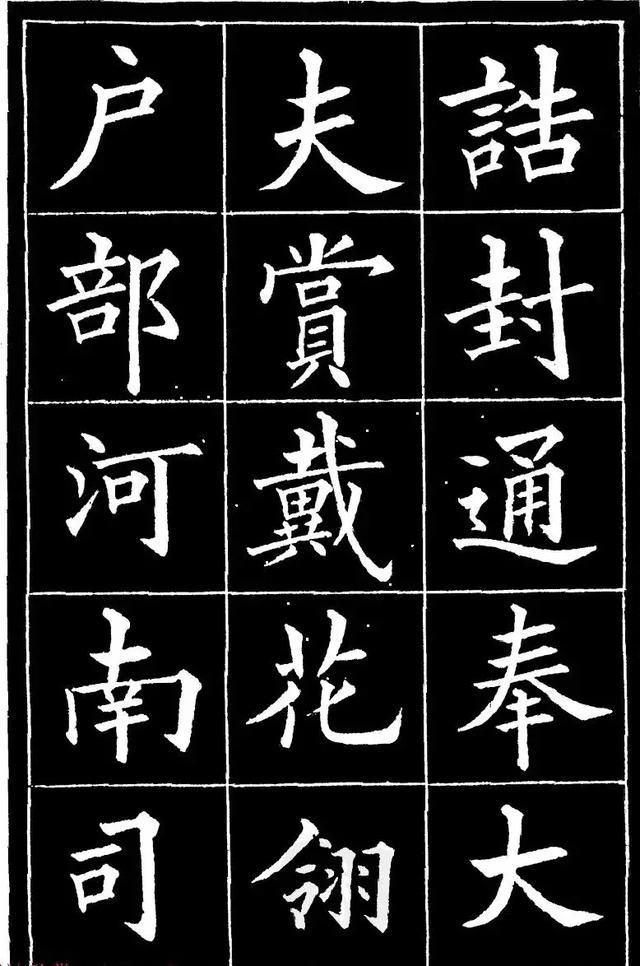 誥封通奉大
夫賞戴花翎
户部河南司